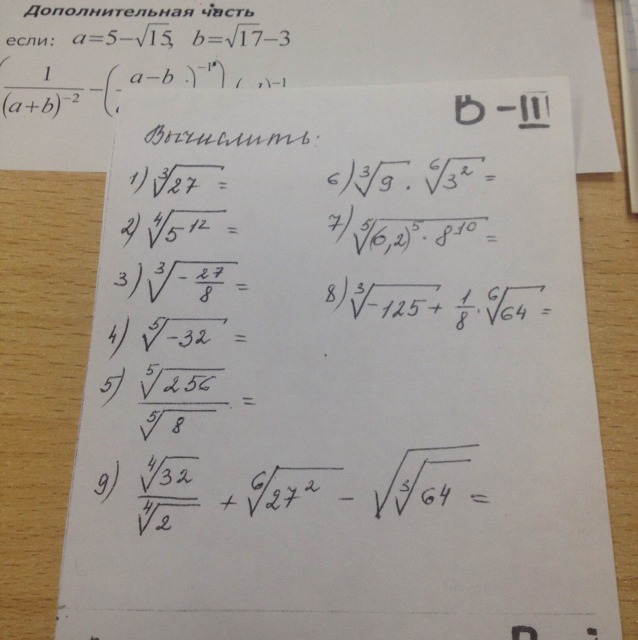 Дополнительная часть
если: a=5−√15, b=√17−3
(1/(a+b)⁻² − (a−b
B − III
Вычислить:
1) ∛27 =
2) ⁴√5¹² =
3) ∛(−27/8) =
4) ⁵√−32 =
5) ⁵√256 / ⁵√8 =
6) ∛9 · ⁶√3² =
7) ⁵√((6,2)⁵ · 8¹⁰) =
8) ∛−125 + 1/8 · ⁶√64 =
9) ⁴√32 / ⁴√2 + ⁶√27² − √∛64 =